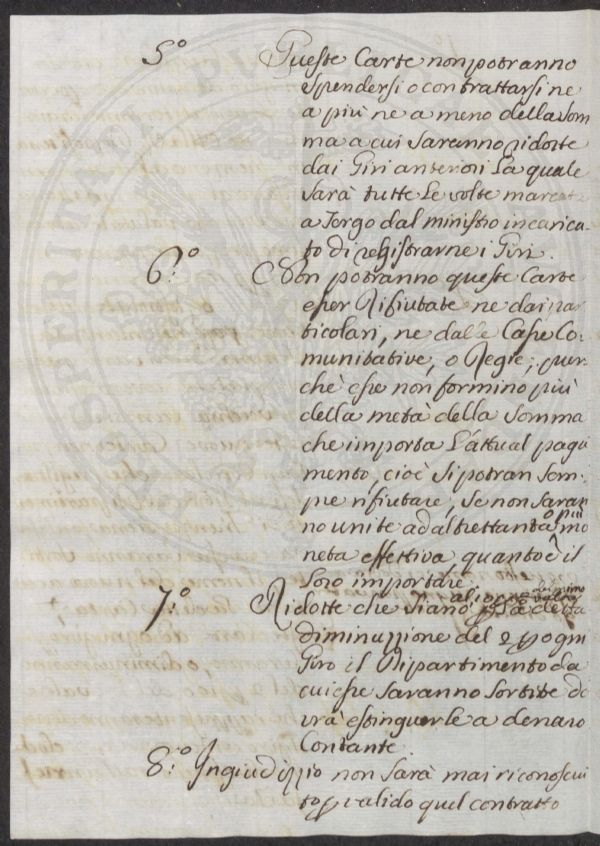 5.° Queste Carte non potranno
spendersi o contrattarsi ne
a più ne a meno della Som
ma a cui saranno ridotte
dai Giri anteriori La quale
sarà tutte le volte marcata
a Tergo dal ministro incarica
to di registrarne i Giri.
6.° Non potranno queste Carte
esser Rifiutate ne dai par
ticolari, ne dalle Casse Co
munitative, o Regie; pur
chè esse non formino più
della metà della somma
che importa L'attual paga
mento, cioè si potran sem
pre rifiutare, se non saran
no unite ad altrettanta o più mo
neta effettiva, quanto è il
Loro importare.
7.° Ridotte che siano al minimo valore p La detta
diminuzzione del 2 p ogni
Giro il Dipartimento da
cui esse saranno sortite do
vrà estinguerle a denaro
Contante.
8.° In giudizzio non sarà mai riconosciu
to p valido quel contratto
PROSPERITATI PUBLICAE